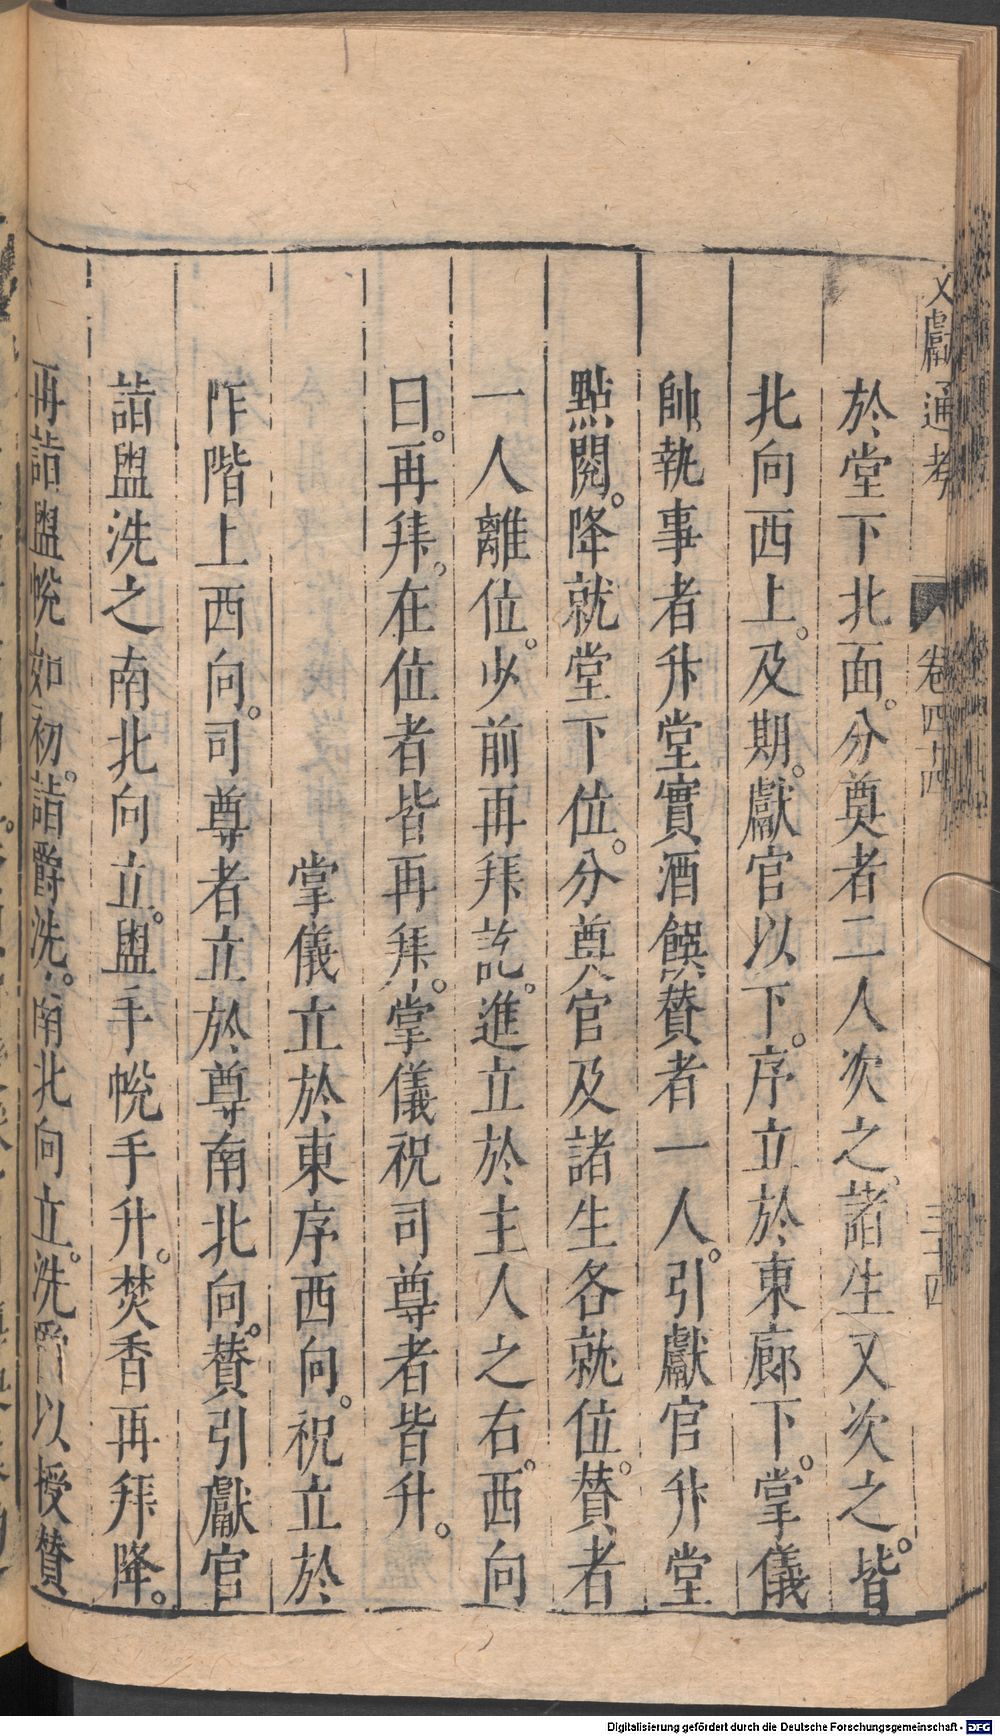 文獻通考 卷四十四 三十四
於堂下北面。分奠者二人次之、諸生又次之。皆
北向西上。及期。獻官以下。序立於東廊下。掌儀
帥執事者升堂實酒饌贊者一人。引獻官升堂
點閱。降就堂下位。分奠官及諸生各就位。贊者
一人離位。少前再拜訖。進立於主人之右。西向
曰。再拜。在位者皆再拜。掌儀祝司尊者皆升。
掌儀立於東序西向。祝立於
阼階上西向。司尊者立於尊南北向。贊引獻官
詣盥洗之南北向立。盥手帨手升。焚香再拜降。
再詣盥帨如初。詣爵洗。南北向立。洗爵以授贊
Digitalisierung gefördert durch die Deutsche Forschungsgemeinschaft - DFG